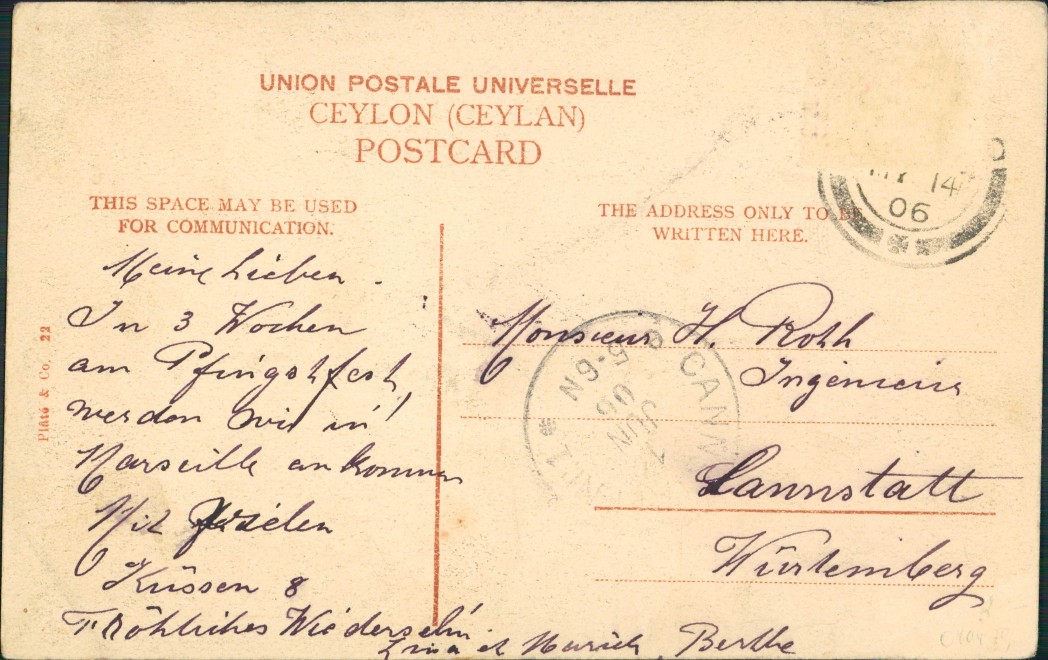 UNION POSTALE UNIVERSELLE
CEYLON (CEYLAN)
POSTCARD
THIS SPACE MAY BE USED
FOR COMMUNICATION.
THE ADDRESS ONLY TO BE
WRITTEN HERE.
14
06
Meine Lieben.
In 3 Wochen
am Pfingstfest,
werden wir in
Marseille ankommen
Mit vielen
Küssen &
Fröhliches Wiedersehn.
Lina et Berthe
Monsieur H. Roth
Ingénieur
Cannstatt
Würtemberg
CANN
5-6N
JUN
06
Plâté & Co. 22